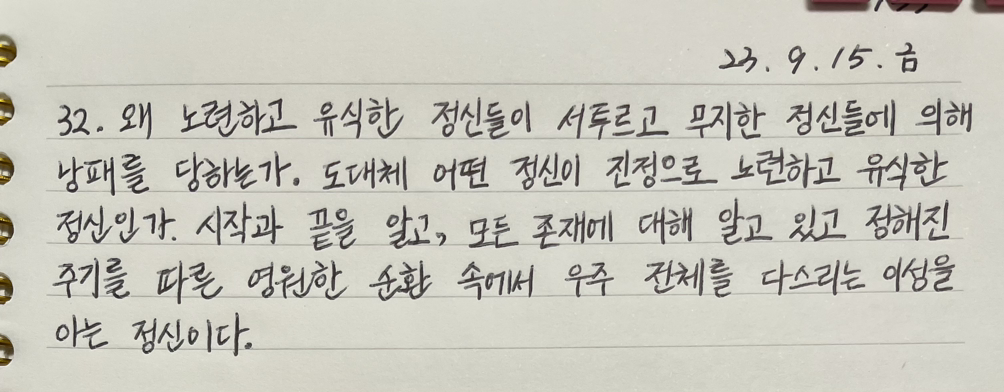 23. 9. 15. 금
32. 왜 노련하고 유식한 정신들이 서투르고 무지한 정신들에 의해
낭패를 당하는가. 도대체 어떤 정신이 진정으로 노련하고 유식한
정신인가. 시작과 끝을 알고, 모든 존재에 대해 알고 있고 정해진
주기를 따른 영원한 순환 속에서 우주 전체를 다스리는 이성을
아는 정신이다.